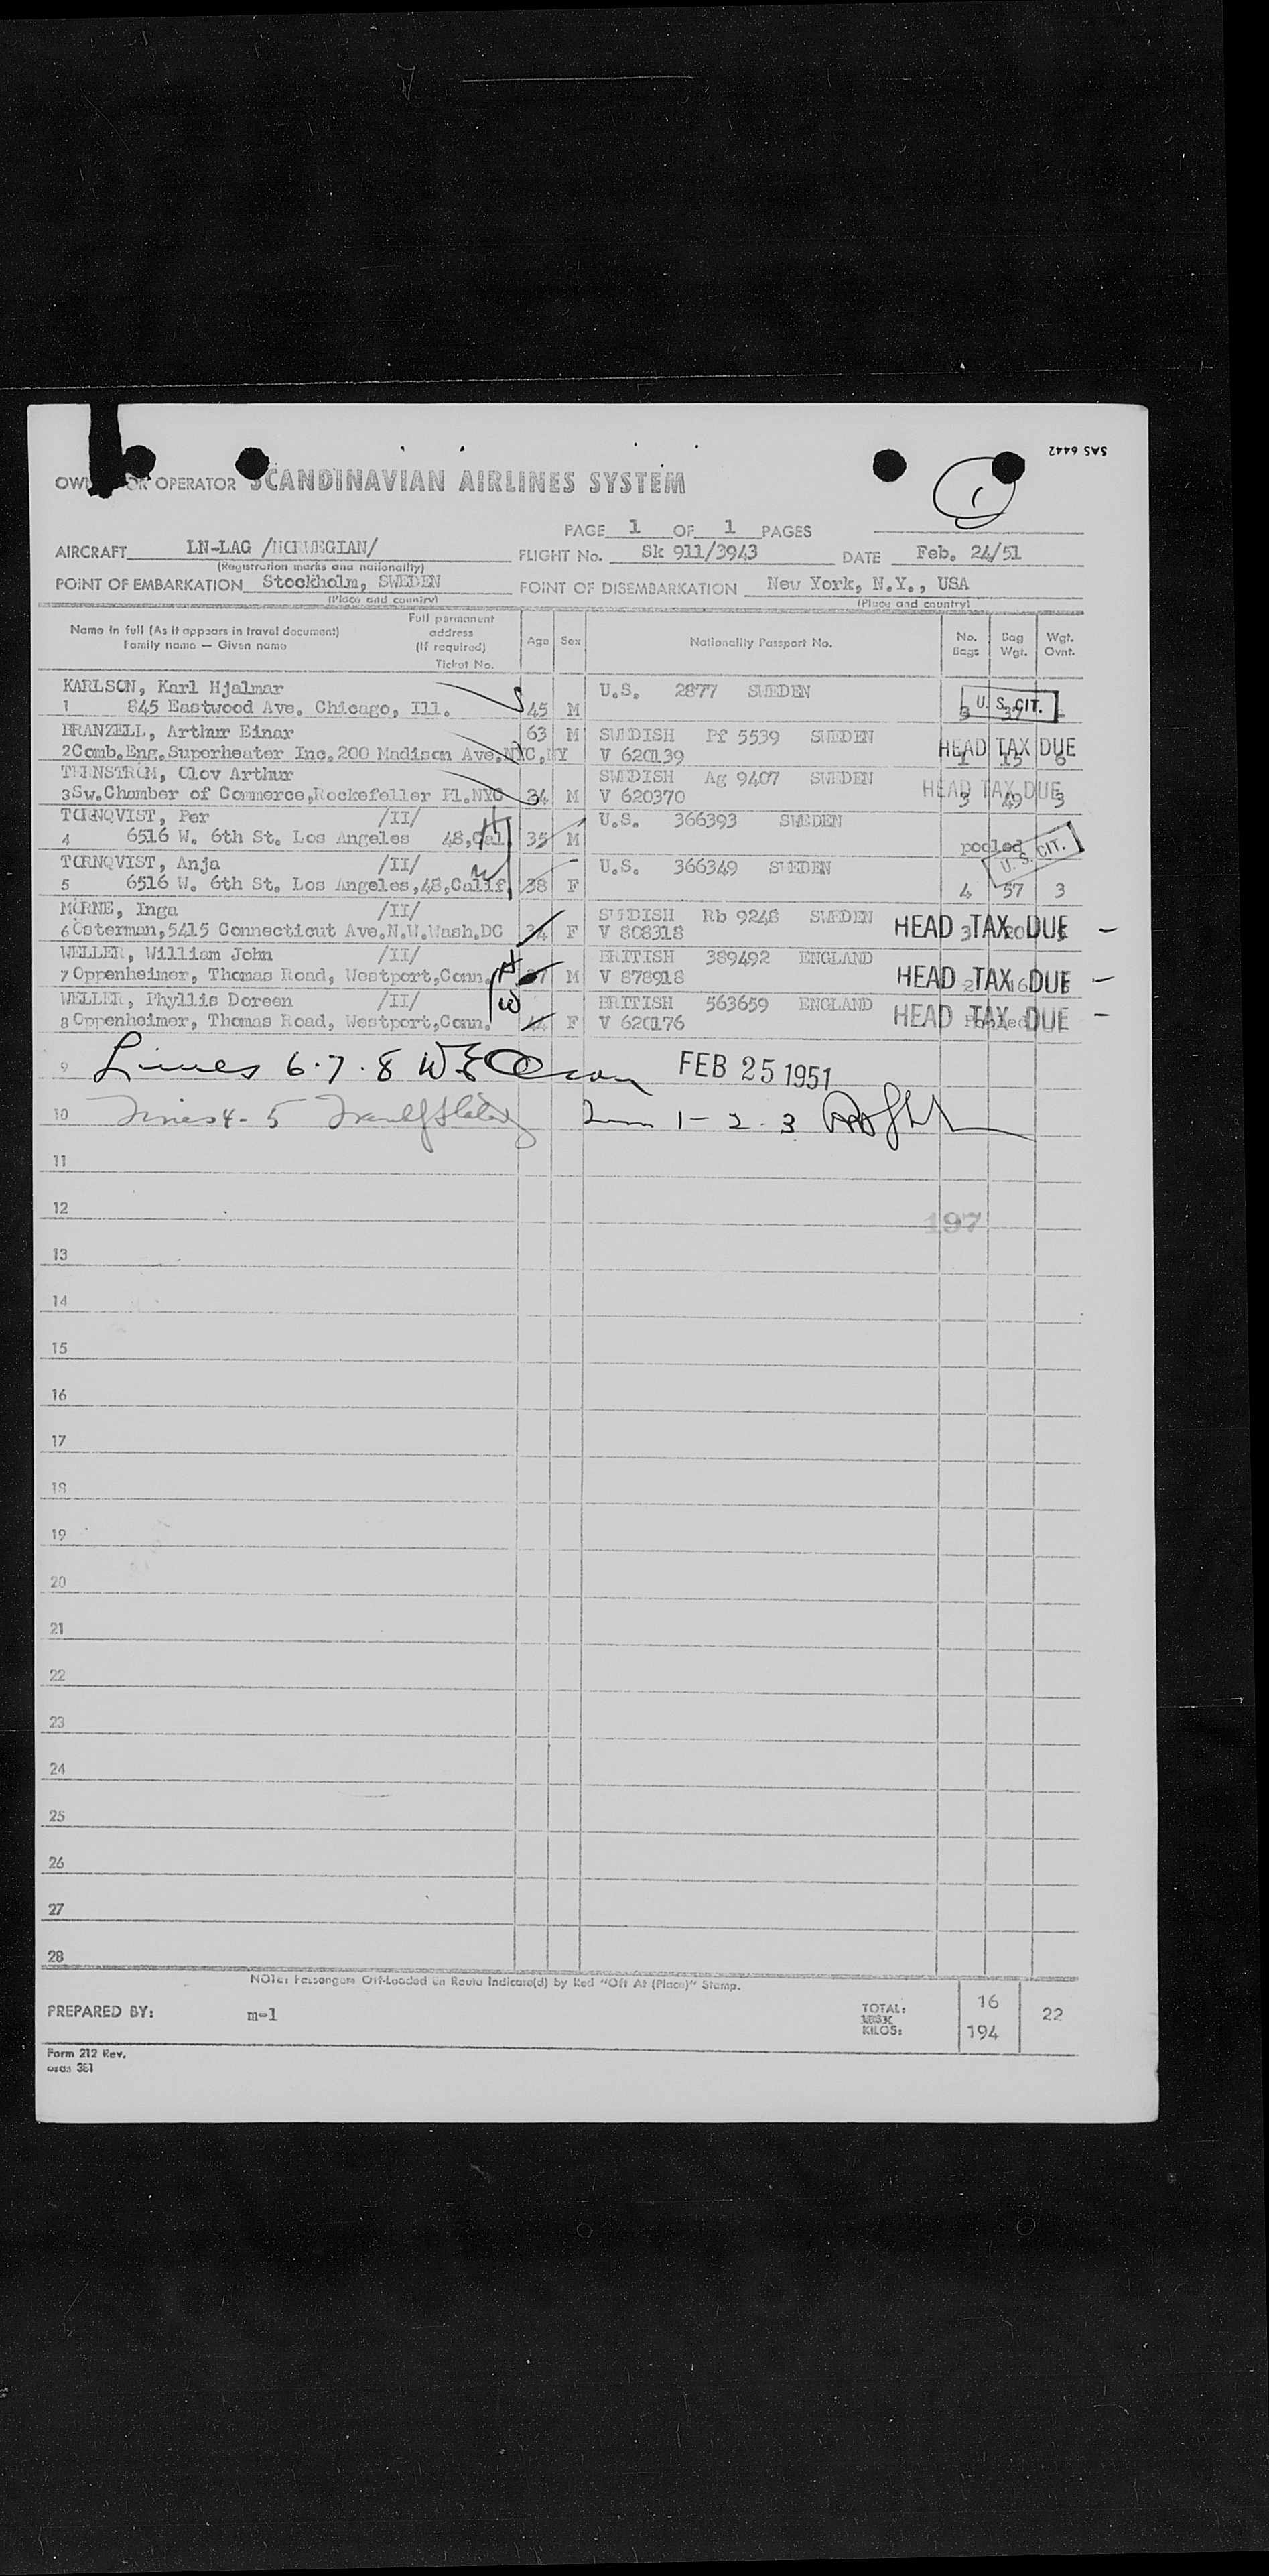 SAS 6442
OR OPERATOR SCANDINAVIAN AIRLINES SYSTEM
PAGE 1 OF 1 PAGES
AIRCRAFT LN-LAG /NORWEGIAN/ FLIGHT No. Sk 911/3943 DATE Feb. 24/51
(Registration marks and nationality)
POINT OF EMBARKATION Stockholm, SWEDEN POINT OF DISEMBARKATION New York, N.Y., USA
(Place and country) (Place and country)
Name in full (As it appears in travel document) Family name — Given name Full permanent address (If required) Ticket No. Age Sex Nationality Passport No. No. Bags Bag Wgt. Wgt. Ovnt.
KARLSON, Karl Hjalmar U.S. 2877 SWEDEN
1 845 Eastwood Ave. Chicago, Ill. 45 M 3 37 U. S. CIT.
BRANZELL, Arthur Einar 63 M SWEDISH Pf 5539 SWEDEN
2 Comb.Eng.Superheater Inc.200 Madison Ave.NYC,NY V 620139 1 15 6 HEAD TAX DUE
TEENSTROM, Olov Arthur SWEDISH Ag 9407 SWEDEN
3 Sw.Chamber of Commerce,Rockefeller Pl.NYC 34 M V 620370 3 49 3 HEAD TAX DUE
TORNQVIST, Per /II/ U.S. 366393 SWEDEN
4 6516 W. 6th St. Los Angeles 48,Cal. H 35 M pooled U. S. CIT.
TORNQVIST, Anja /II/ U.S. 366349 SWEDEN
5 6516 W. 6th St. Los Angeles,48,Calif. W 38 F 4 57 3
MORNE, Inga /II/ SWEDISH Rb 9248 SWEDEN
6 Osterman,5415 Connecticut Ave.N.W.Wash.DC 34 F V 808318 3 20 HEAD TAX DUE –
WELLER, William John /II/ BRITISH 389492 ENGLAND
7 Oppenheimer, Thomas Road, Westport,Conn. H M V 878918 2 16 HEAD TAX DUE –
WELLER, Phyllis Doreen /II/ BRITISH 563659 ENGLAND
8 Oppenheimer, Thomas Road, Westport,Conn. W F V 620176 Pooled HEAD TAX DUE –
9 Lines 6.7.8 FEB 25 1951
10 Lines 4-5 1-2.3
11
12
197
13
14
15
16
17
18
19
20
21
22
23
24
25
26
27
28
NOTE: Passengers Off-Loaded En Route Indicate(d) by Red "Off At (Place)" Stamp.
PREPARED BY: m-1 TOTAL: 16 22
KILOS: 194
Form 212 Rev.
osas 361